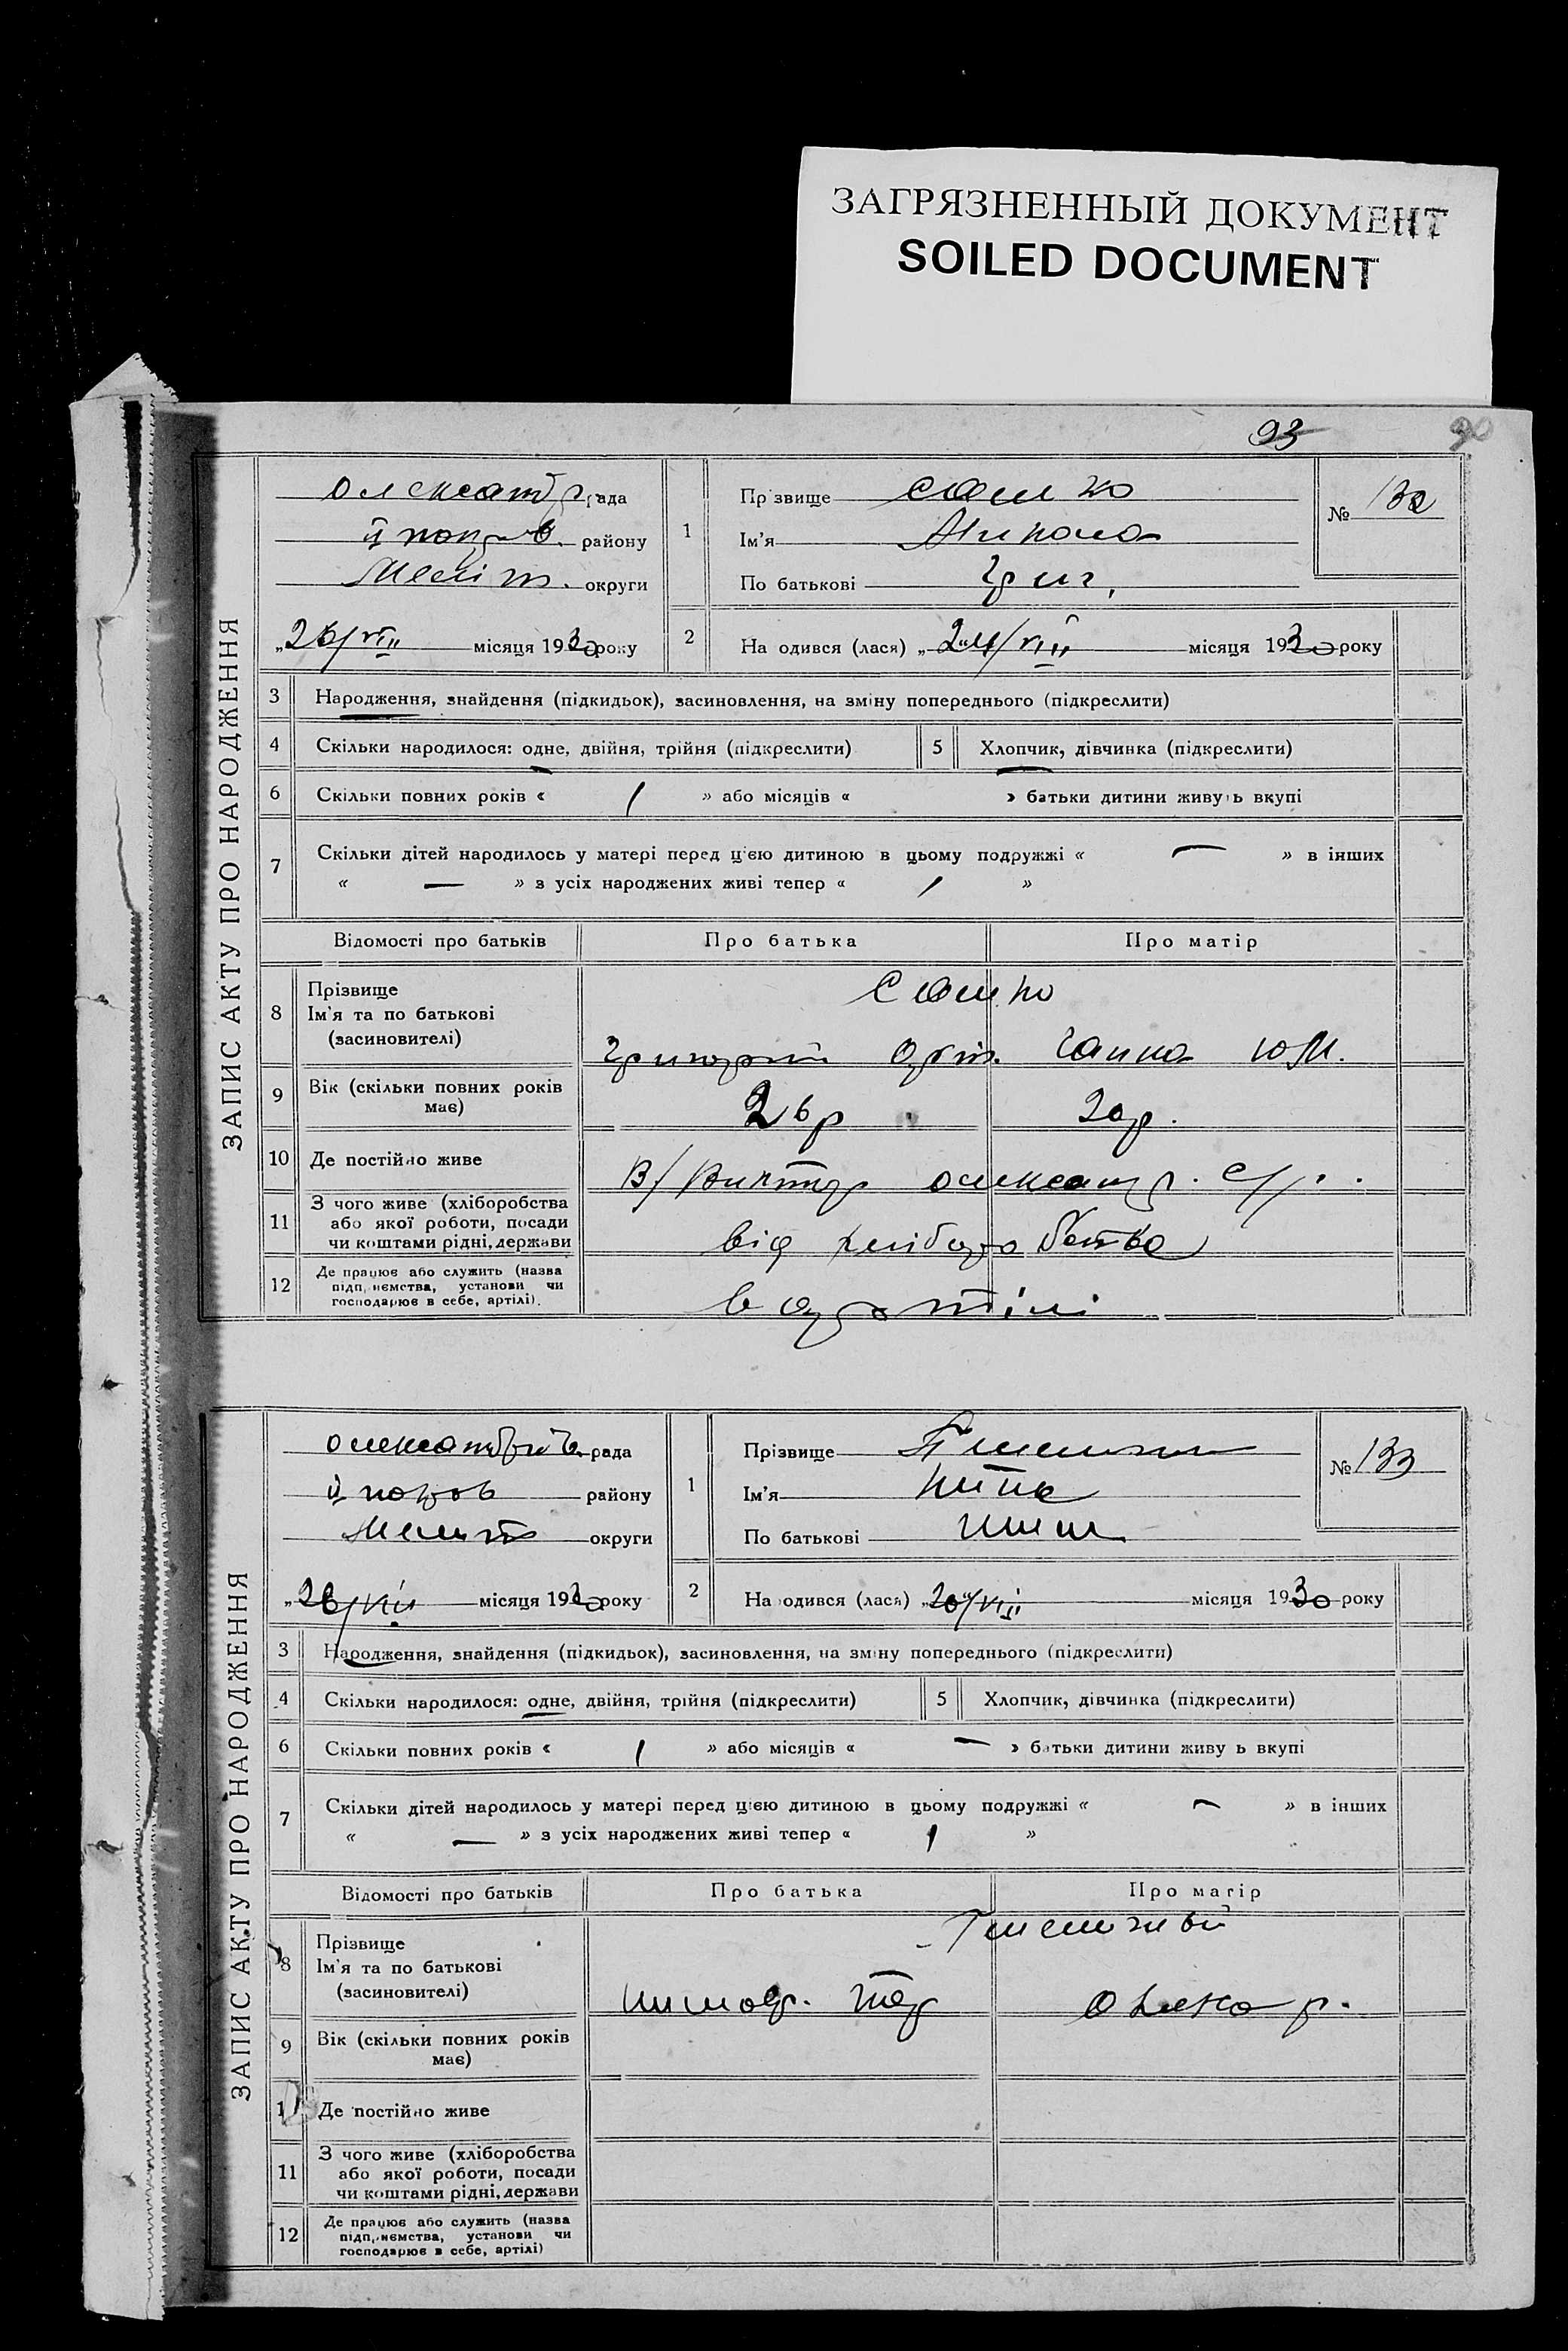 ЗАГРЯЗНЕННЫЙ ДОКУМЕНТ
SOILED DOCUMENT
93
90
ЗАПИС АКТУ ПРО НАРОДЖЕННЯ
Олександр рада
району
Меліт. округи
1 Прізвище Сашко
Ім'я Микола
По батькові Григ.
№ 132
„26/VIII місяця 1930 року
2 Народився (лася) „24/VIII місяця 1930 року
3 Народження, знайдення (підкидьок), засиновлення, на зміну попереднього (підкреслити)
4 Скільки народилося: одне, двійня, трійня (підкреслити) 5 Хлопчик, дівчинка (підкреслити)
6 Скільки повних років « 1 » або місяців « » батьки дитини живуть вкупі
7 Скільки дітей народилось у матері перед цією дитиною в цьому подружжі « — » в інших
« — » з усіх народжених живі тепер « 1 »
Відомості про батьків Про батька Про матір
8 Прізвище Сашко
Ім'я та по батькові
(засиновителі) Григорій Ганна Ю М.
9 Вік (скільки повних років має) 26 р 20 р.
10 Де постійно живе В/Виктор олександр. С/р.
11 З чого живе (хліборобства
або якої роботи, посади
чи коштами рідні, держави від хліборобства
12 Де працює або служить (назва
підприємства, установи чи
господарює в себе, артілі). в артілі
ЗАПИС АКТУ ПРО НАРОДЖЕННЯ
рада
району
Меліт округи
1 Прізвище
Ім'я
По батькові
№ 133
„26/VIII місяця 1930 року
2 Народився (лася) „20/VIII місяця 1930 року
3 Народження, знайдення (підкидьок), засиновлення, на зміну попереднього (підкреслити)
4 Скільки народилося: одне, двійня, трійня (підкреслити) 5 Хлопчик, дівчинка (підкреслити)
6 Скільки повних років « 1 » або місяців « — » батьки дитини живуть вкупі
7 Скільки дітей народилось у матері перед цією дитиною в цьому подружжі « — » в інших
« — » з усіх народжених живі тепер « 1 »
Відомості про батьків Про батька Про матір
8 Прізвище
Ім'я та по батькові
(засиновителі)
9 Вік (скільки повних років має)
10 Де постійно живе
11 З чого живе (хліборобства
або якої роботи, посади
чи коштами рідні, держави
12 Де працює або служить (назва
підприємства, установи чи
господарює в себе, артілі)